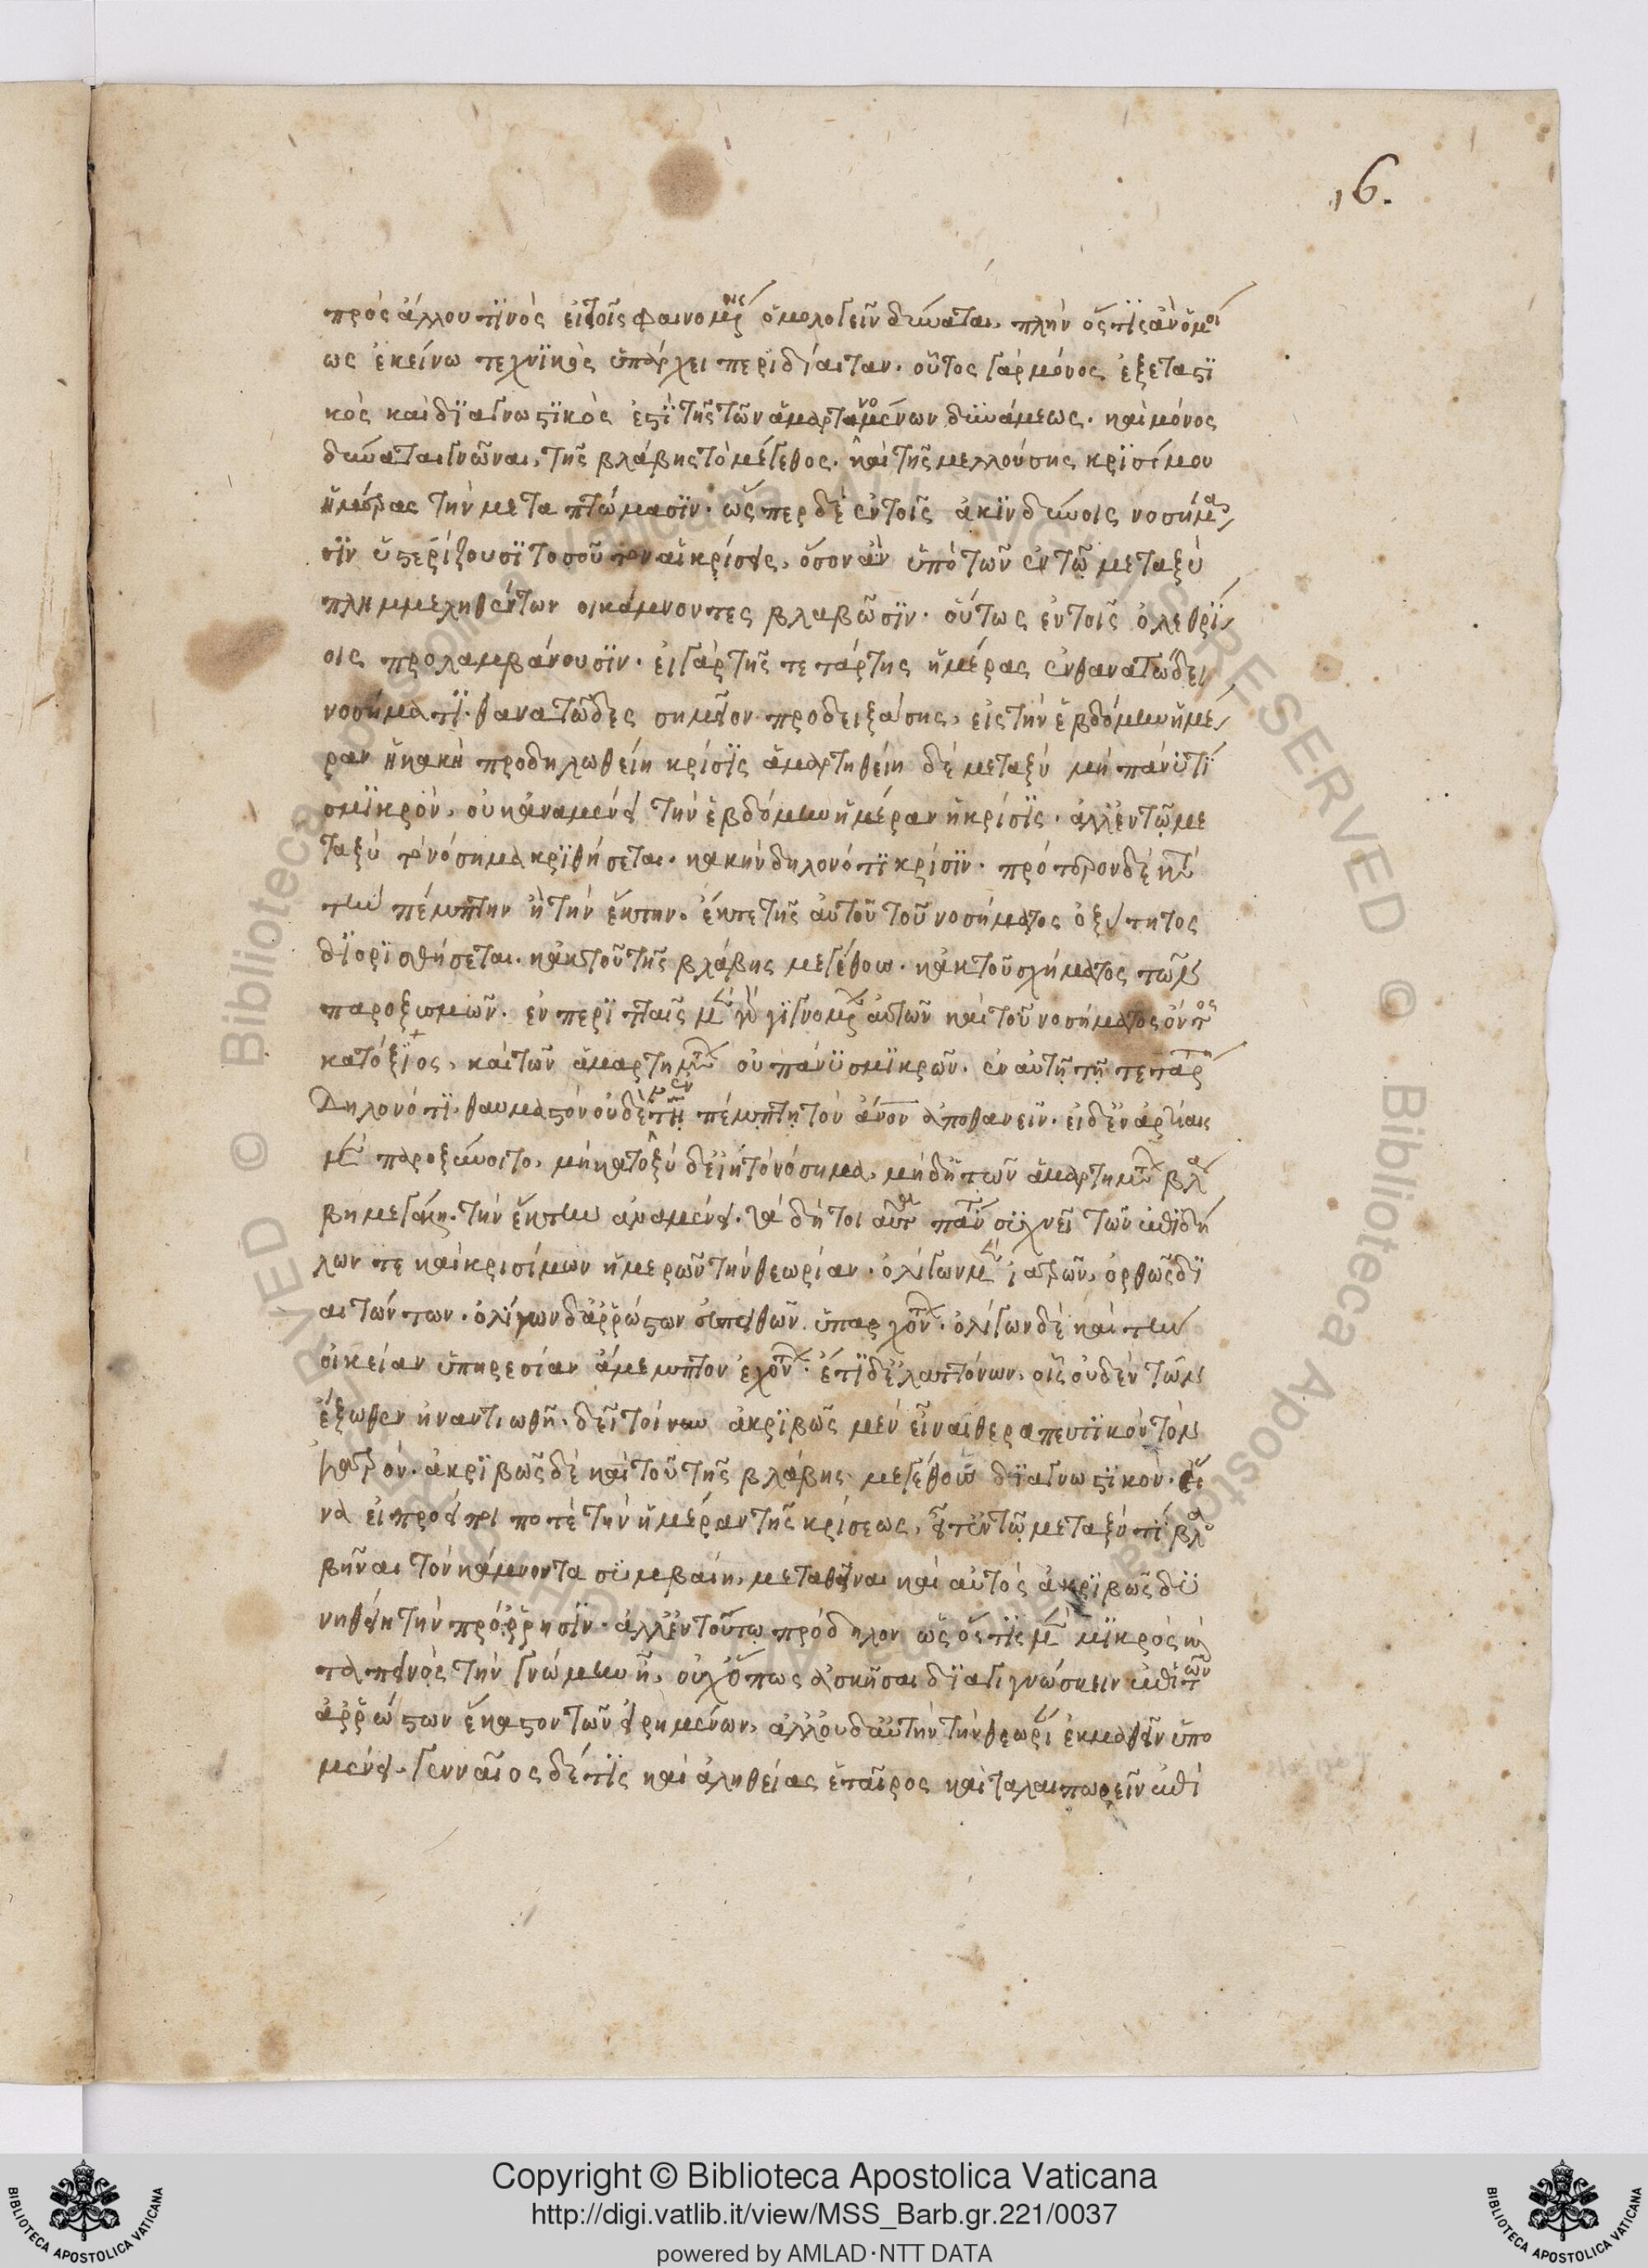 16.
πρὸς ἄλλου τινὸς εἰ τοῖς φαινομένοις ὁμολογεῖν δύναται, πλὴν ὅστις ἂν ὁμοί
ως ἐκείνω τεχνικὸς ὑπάρχει περὶ δίαιταν. οὗτος γὰρ μόνος ἐξεταστι
κὸς καὶ διαγνωστικὸς ἐστὶ τῆς τῶν ἁμαρτανομένων δυνάμεως. καὶ μόνος
δύναται γνῶναι, τῆς βλάβης τὸ μέγεθος. καὶ τῆς μελλούσης κρισίμου
ἡμέρας τὴν μεταπτώμασιν. ὥσπερ δὲ ἐν τοῖς ἀκινδύνοις νοσήμα
σιν ὑστερίζουσι τοσοῦτον αἱ κρίσεις, ὅσον ἂν ὑπὸ τῶν ἐν τῷ μεταξὺ
πλημμεληθέντων οἱ κάμνοντες βλαβῶσιν. οὕτως ἐν τοῖς ὀλεθρί
οις προλαμβάνουσιν. εἰ γὰρ τῆς τετάρτης ἡμέρας ἐν θανατώδει
νοσήματι. θανατῶδες σημεῖον προδειξάσης, εἰς τὴν ἑβδόμην ἡμέ
ραν ἡ κακὴ προδηλωθείη κρίσις ἁμαρτηθείη δὲ μεταξὺ μὴ πάνυ τι
σμικρὸν, οὐκ ἀναμένει τὴν ἑβδόμην ἡμέραν ἡ κρίσις. ἀλλ' ἐν τῷ με
ταξὺ τὸ νόσημα κριθήσεται. κακὴν δηλονότι κρίσιν. πρότερον δὲ κατὰ
τὴν πέμπτην ἢ τὴν ἕκτην. ἔκ τε τῆς αὐτοῦ τοῦ νοσήματος ὀξύτητος
διορισθήσεται. κἀκ τοῦ τῆς βλάβης μεγέθους. κἀκ τοῦ σχήματος τῶν
παροξυσμῶν. ἐν περιτταῖς μὲν γὰρ γιγνομένων αὐτῶν καὶ τοῦ νοσήματος ὄντος
κατόξιος, καὶ τῶν ἁμαρτημάτων οὐ πάνυ σμικρῶν. ἐν αὐτῇ τῇ τετάρτῃ
Δηλονότι. θαυμαστὸν οὐδὲν τῇ πέμπτῃ τὸν ἄνον ἀποθανεῖν. εἰ δ' ἐν ἀρτίαις
μὲν παροξύνοιτο, μὴ κατοξὺ δ' εἴη τὸ νόσημα, μὴ δ' ἡ τῶν ἁμαρτημάτων βλά
βη μεγάλη. τὴν ἕκτην ἀναμένει.
λων τε καὶ κρισίμων ἡμερῶν τὴν θεωρίαν. ὀλίγων μὲν ἰατρῶν, ὀρθῶς δι
αιτώντων. ὀλίγων δ' ἀρρώστων εὐπειθῶν ὑπαρχόντων. ὀλίγων δὲ καὶ τὴν
οἰκείαν ὑπηρεσίαν ἄμεμπτον ἐχόντων. ἔτι δ' ἐλαττόνων, οἷς οὐδὲν τῶν
ἔξωθεν ἠναντιωθῆ. δεῖ τοίνυν ἀκριβῶς μὲν εἶναι θεραπευτικὸν τὸν
ἰατρόν. ἀκριβῶς δὲ καὶ τοῦ τῆς βλάβης μεγέθους διαγνωστικὸν. ἵ
να εἰ προείποι ποτὲ τὴν ἡμέραν τῆς κρίσεως, εἶτ' ἐν τῷ μεταξύ τι βλα
βῆναι τὸν κάμνοντα συμβαίη, μεταθεῖναι καὶ αὐτὸς ἀκριβῶς δυ
νηθείη τὴν πρόρρησιν. ἀλλ' ἐν τούτῳ πρόδηλον ὡς ὅστις μὲν μικρὸς καὶ
ταπεινὸς τὴν γνώμην ᾖ, οὐχ ὅπως ἀσκῆσαι διαγιγνώσκειν ἐπὶ τῶν
ἀρρώστων ἕκαστον τῶν εἰρημένων, ἀλλ' οὐδ' αὐτὴν τὴν θεωρίαν ἐκμαθεῖν ὑπο
μένει. γενναῖος δέ τις καὶ ἀληθείας ἑταῖρος καὶ ταλαιπωρεῖν ἐπὶ
Copyright © Biblioteca Apostolica Vaticana
http://digi.vatlib.it/view/MSS_Barb.gr.221/0037
powered by AMLAD·NTT DATA